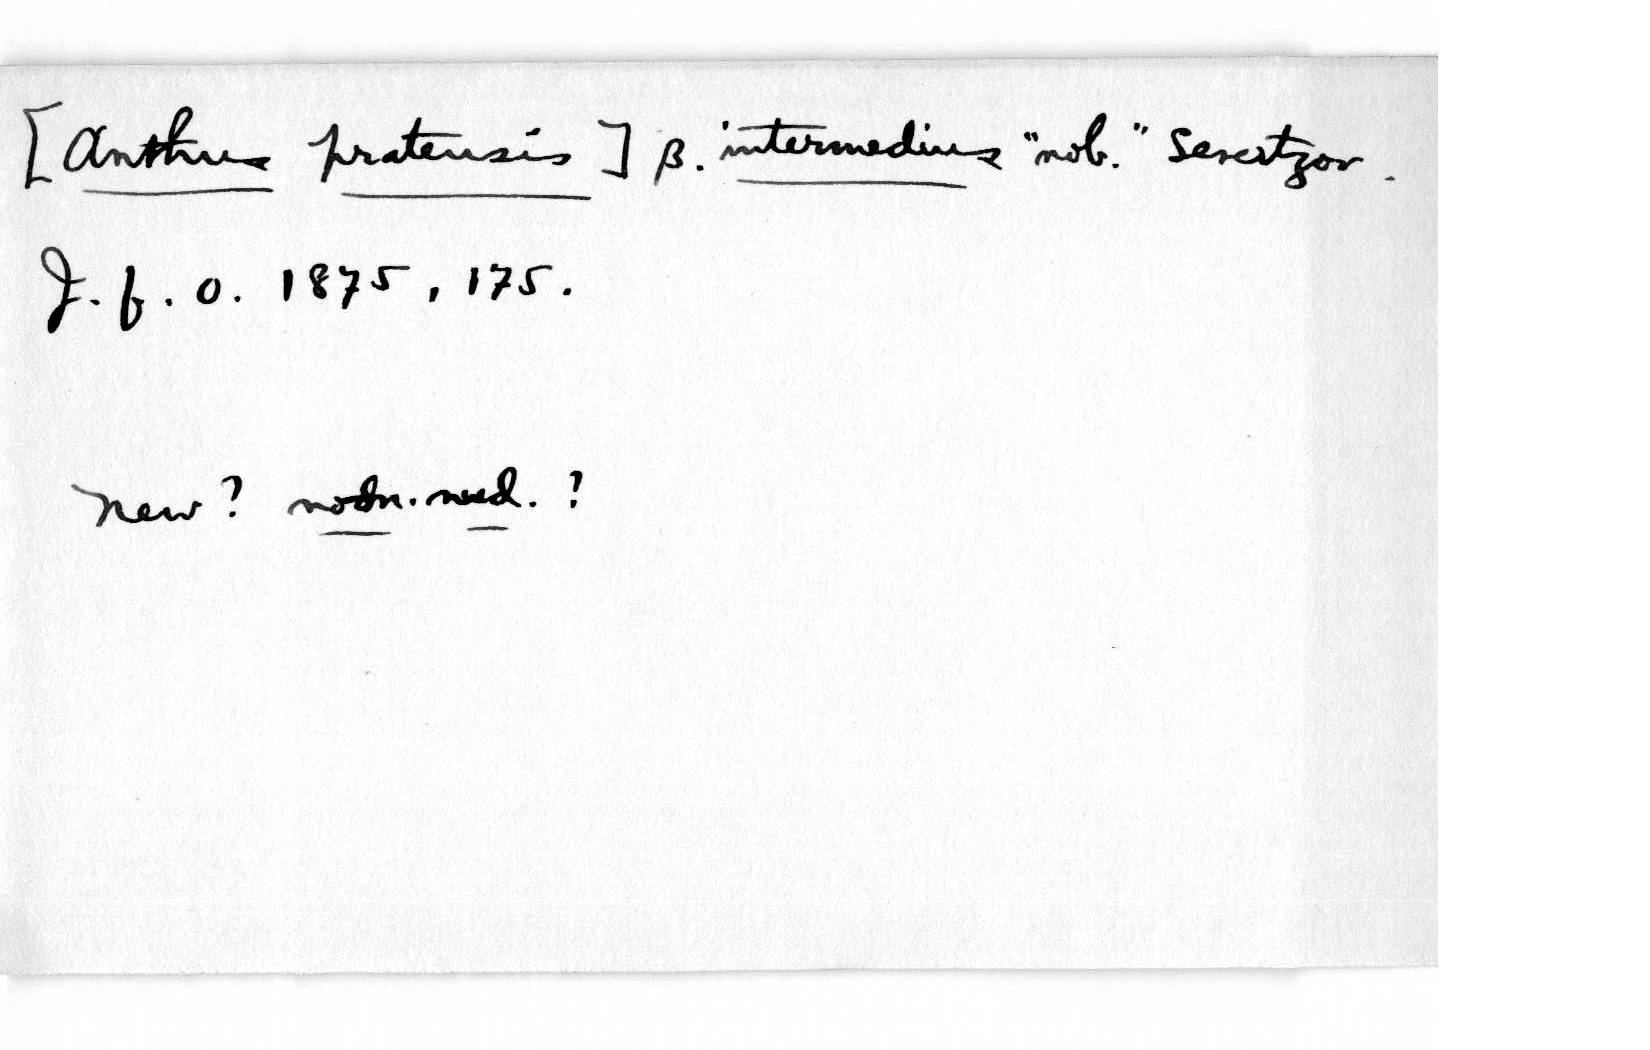 [Anthus pratensis] β. intermedius "nob." Severtzov.
J. f. O. 1875, 175.
New? nom. nud.?